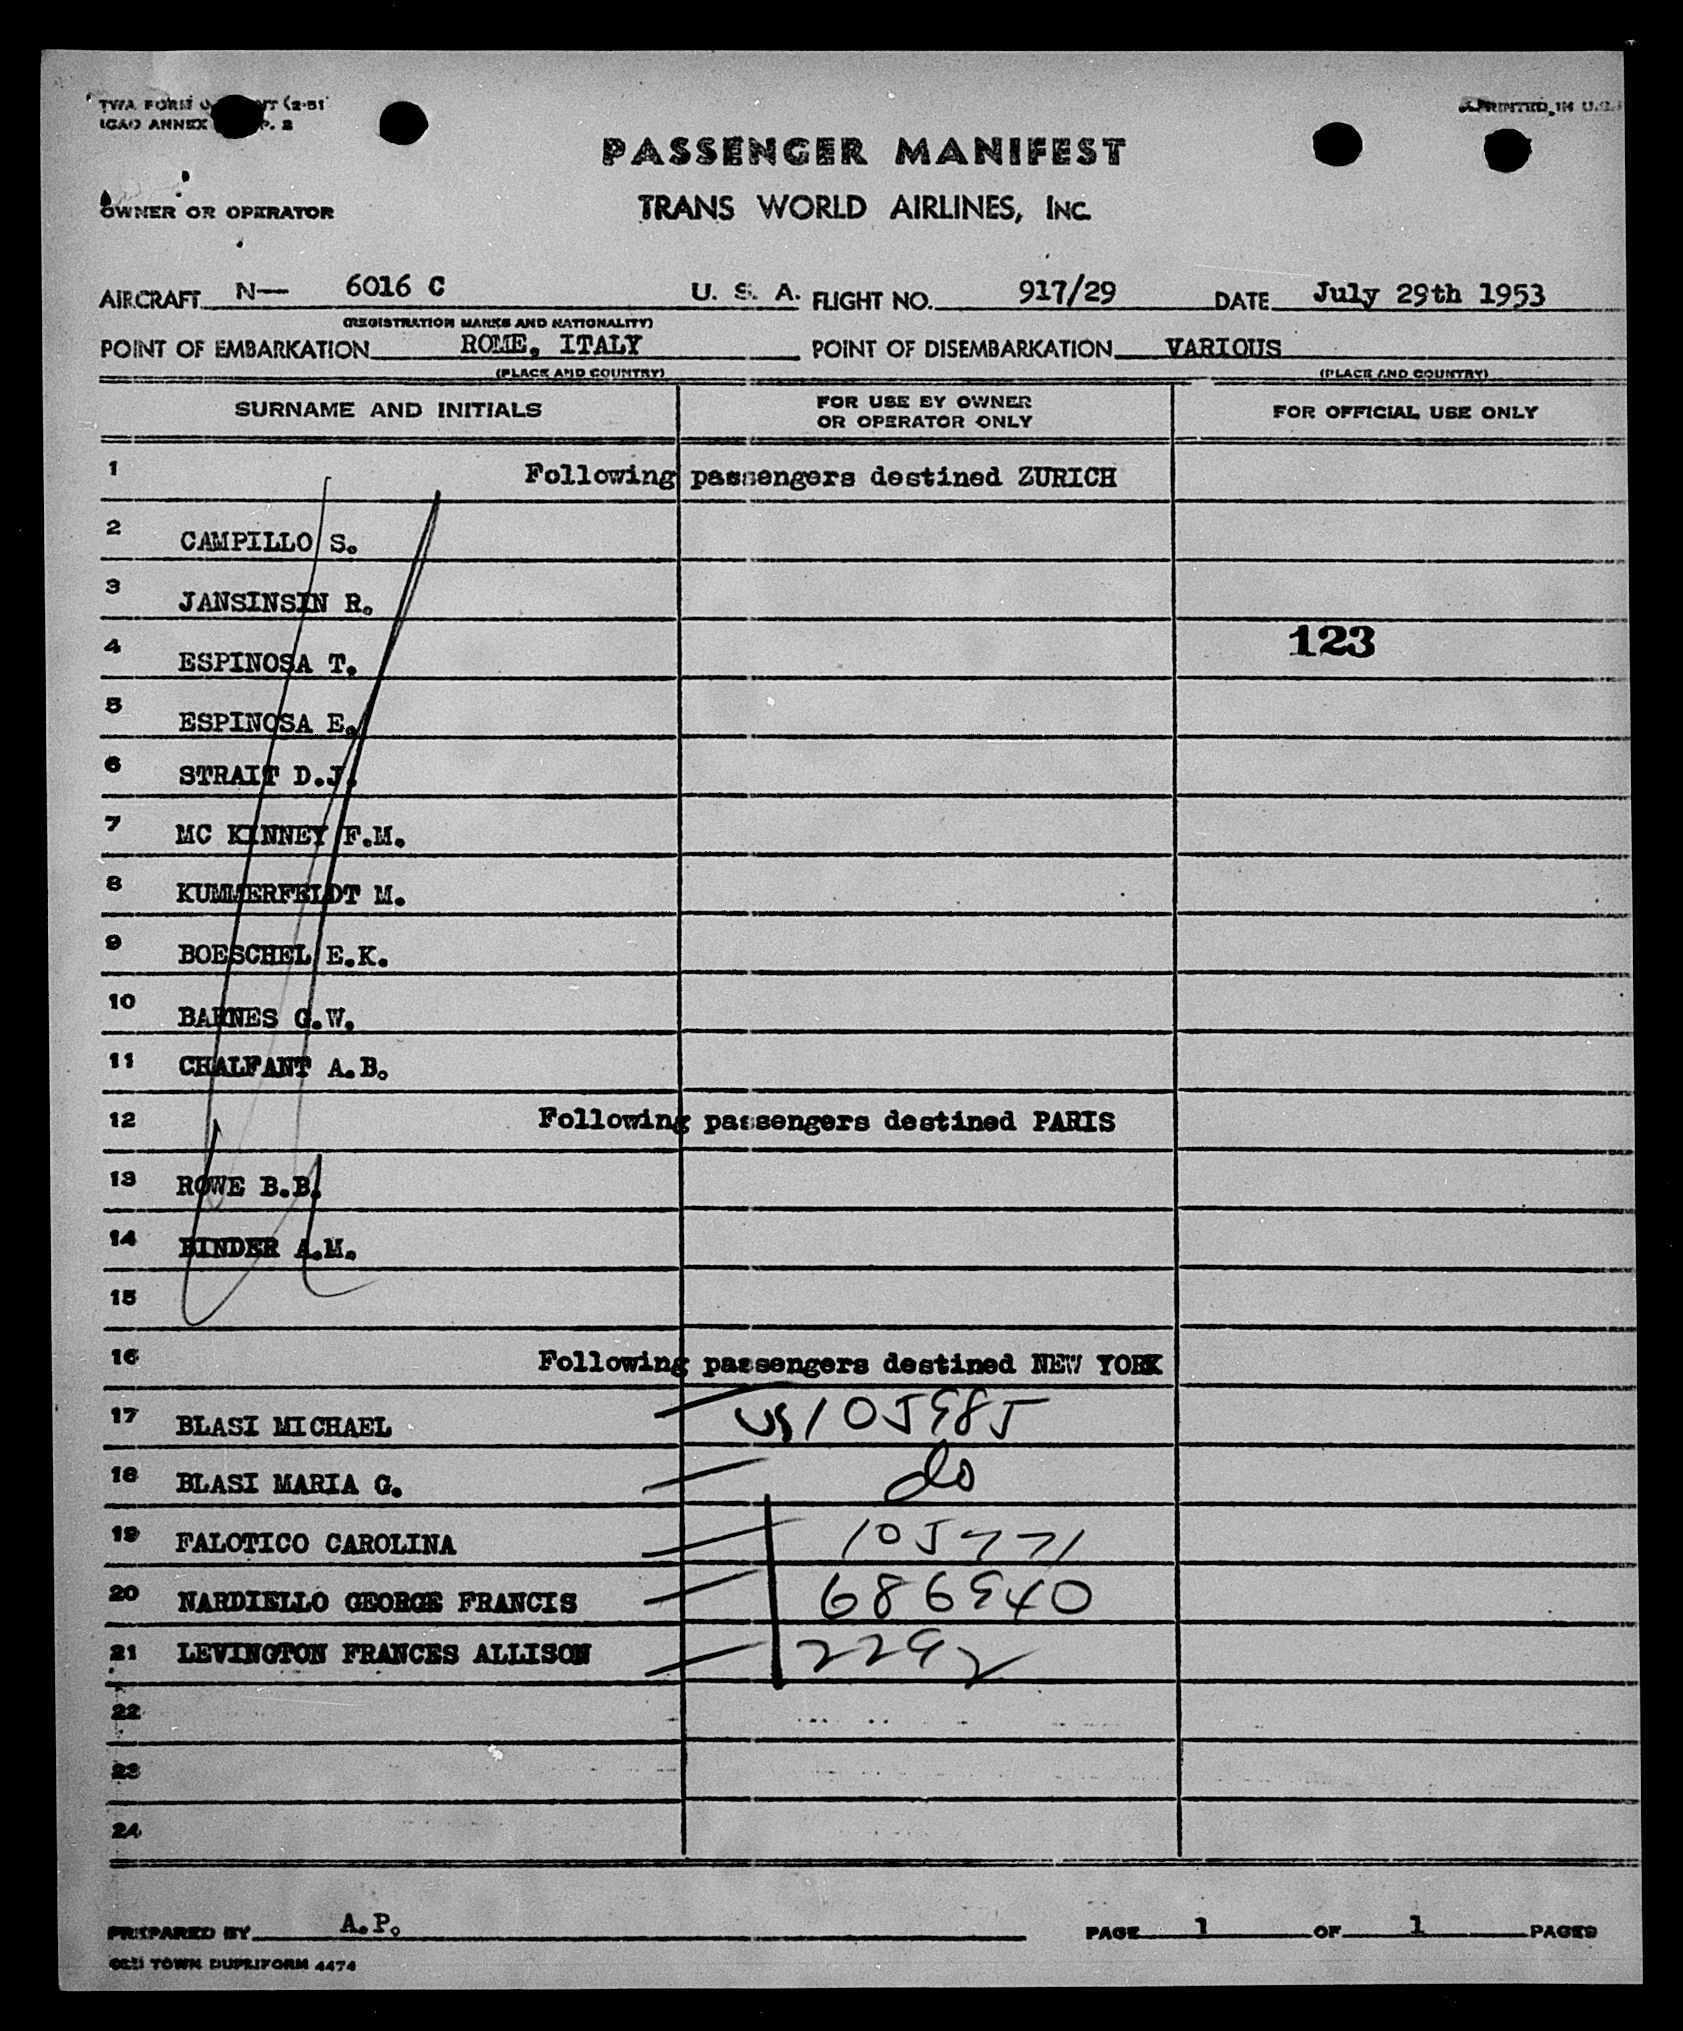 TWA FORM (2-51
ICAO ANNEX P. 2
PRINTED IN U.S.
PASSENGER MANIFEST
OWNER OR OPERATOR
TRANS WORLD AIRLINES, INC.
AIRCRAFT N— 6016 C U. S. A. FLIGHT NO. 917/29 DATE July 29th 1953
(REGISTRATION MARKS AND NATIONALITY)
POINT OF EMBARKATION ROME, ITALY POINT OF DISEMBARKATION VARIOUS
(PLACE AND COUNTRY) (PLACE AND COUNTRY)
SURNAME AND INITIALS FOR USE BY OWNER OR OPERATOR ONLY FOR OFFICIAL USE ONLY
1 Following passengers destined ZURICH
2 CAMPILLO S.
3 JANSINSIN R.
4 ESPINOSA T. 123
5 ESPINOSA E.
6 STRAIT D.J.
7 MC KINNEY F.M.
8 KUMMERFELDT M.
9 BOESCHEL E.K.
10 BARNES G.W.
11 CHALFANT A.B.
12 Following passengers destined PARIS
13 ROWE B.B.
14 BINDER A.M.
15
16 Following passengers destined NEW YORK
17 BLASI MICHAEL US 105985
18 BLASI MARIA G. do
19 FALOTICO CAROLINA 105771
20 NARDIELLO GEORGE FRANCIS 686940
21 LEVINGTON FRANCES ALLISON 2292
22
23
24
PREPARED BY A.P. PAGE 1 OF 1 PAGES
TOWN DUPLIFORM 4474